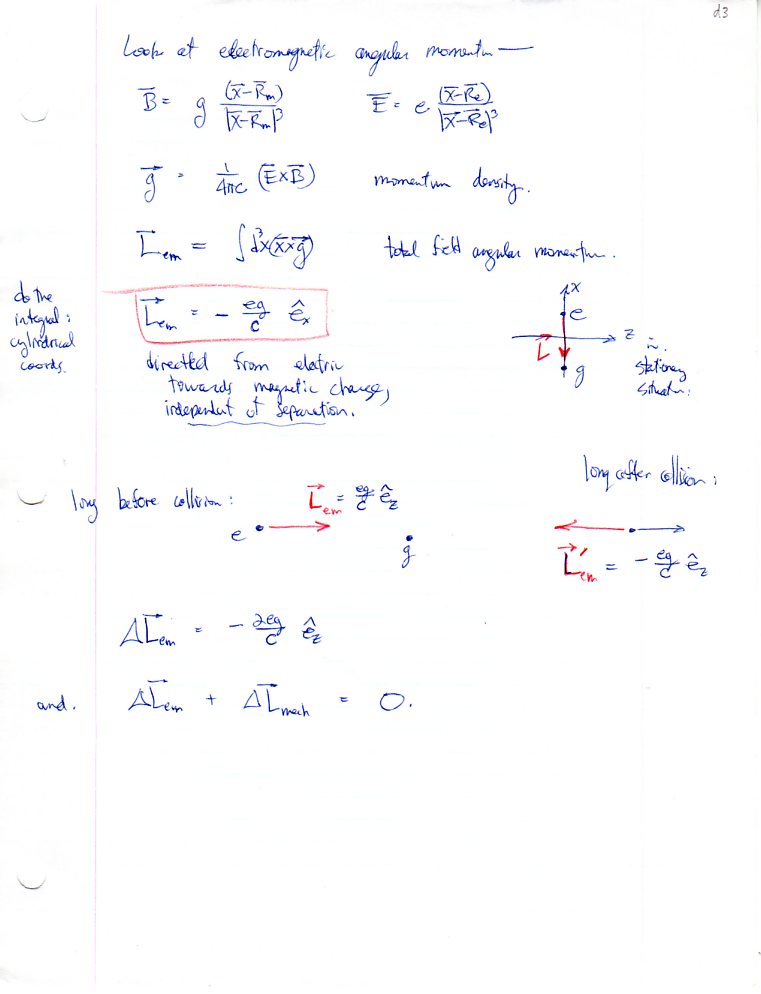 d3
Look at electromagnetic angular momentum —
B̅ = g (x̅-R̅m)/|x̅-R̅m|³   E̅ = e (x̅-R̅e)/|x̅-R̅e|³
g⃗ = 1/4πc (E̅×B̅)   momentum density.
L⃗em = ∫d³x(x⃗×g⃗)   total field angular momentum.
do the
integral:
cylindrical
coords.
L⃗em = - eg/c ê_x
directed from electric
towards magnetic charge,
independent of separation.
x
e
z
L
g
in
stationary
situation.
long before collision:
L⃗em = eg/c ê_z
e
g
long after collision:
L⃗'em = - eg/c ê_z
ΔL⃗em = - 2eg/c ê_z
and. ΔL⃗em + ΔL⃗mech = 0.